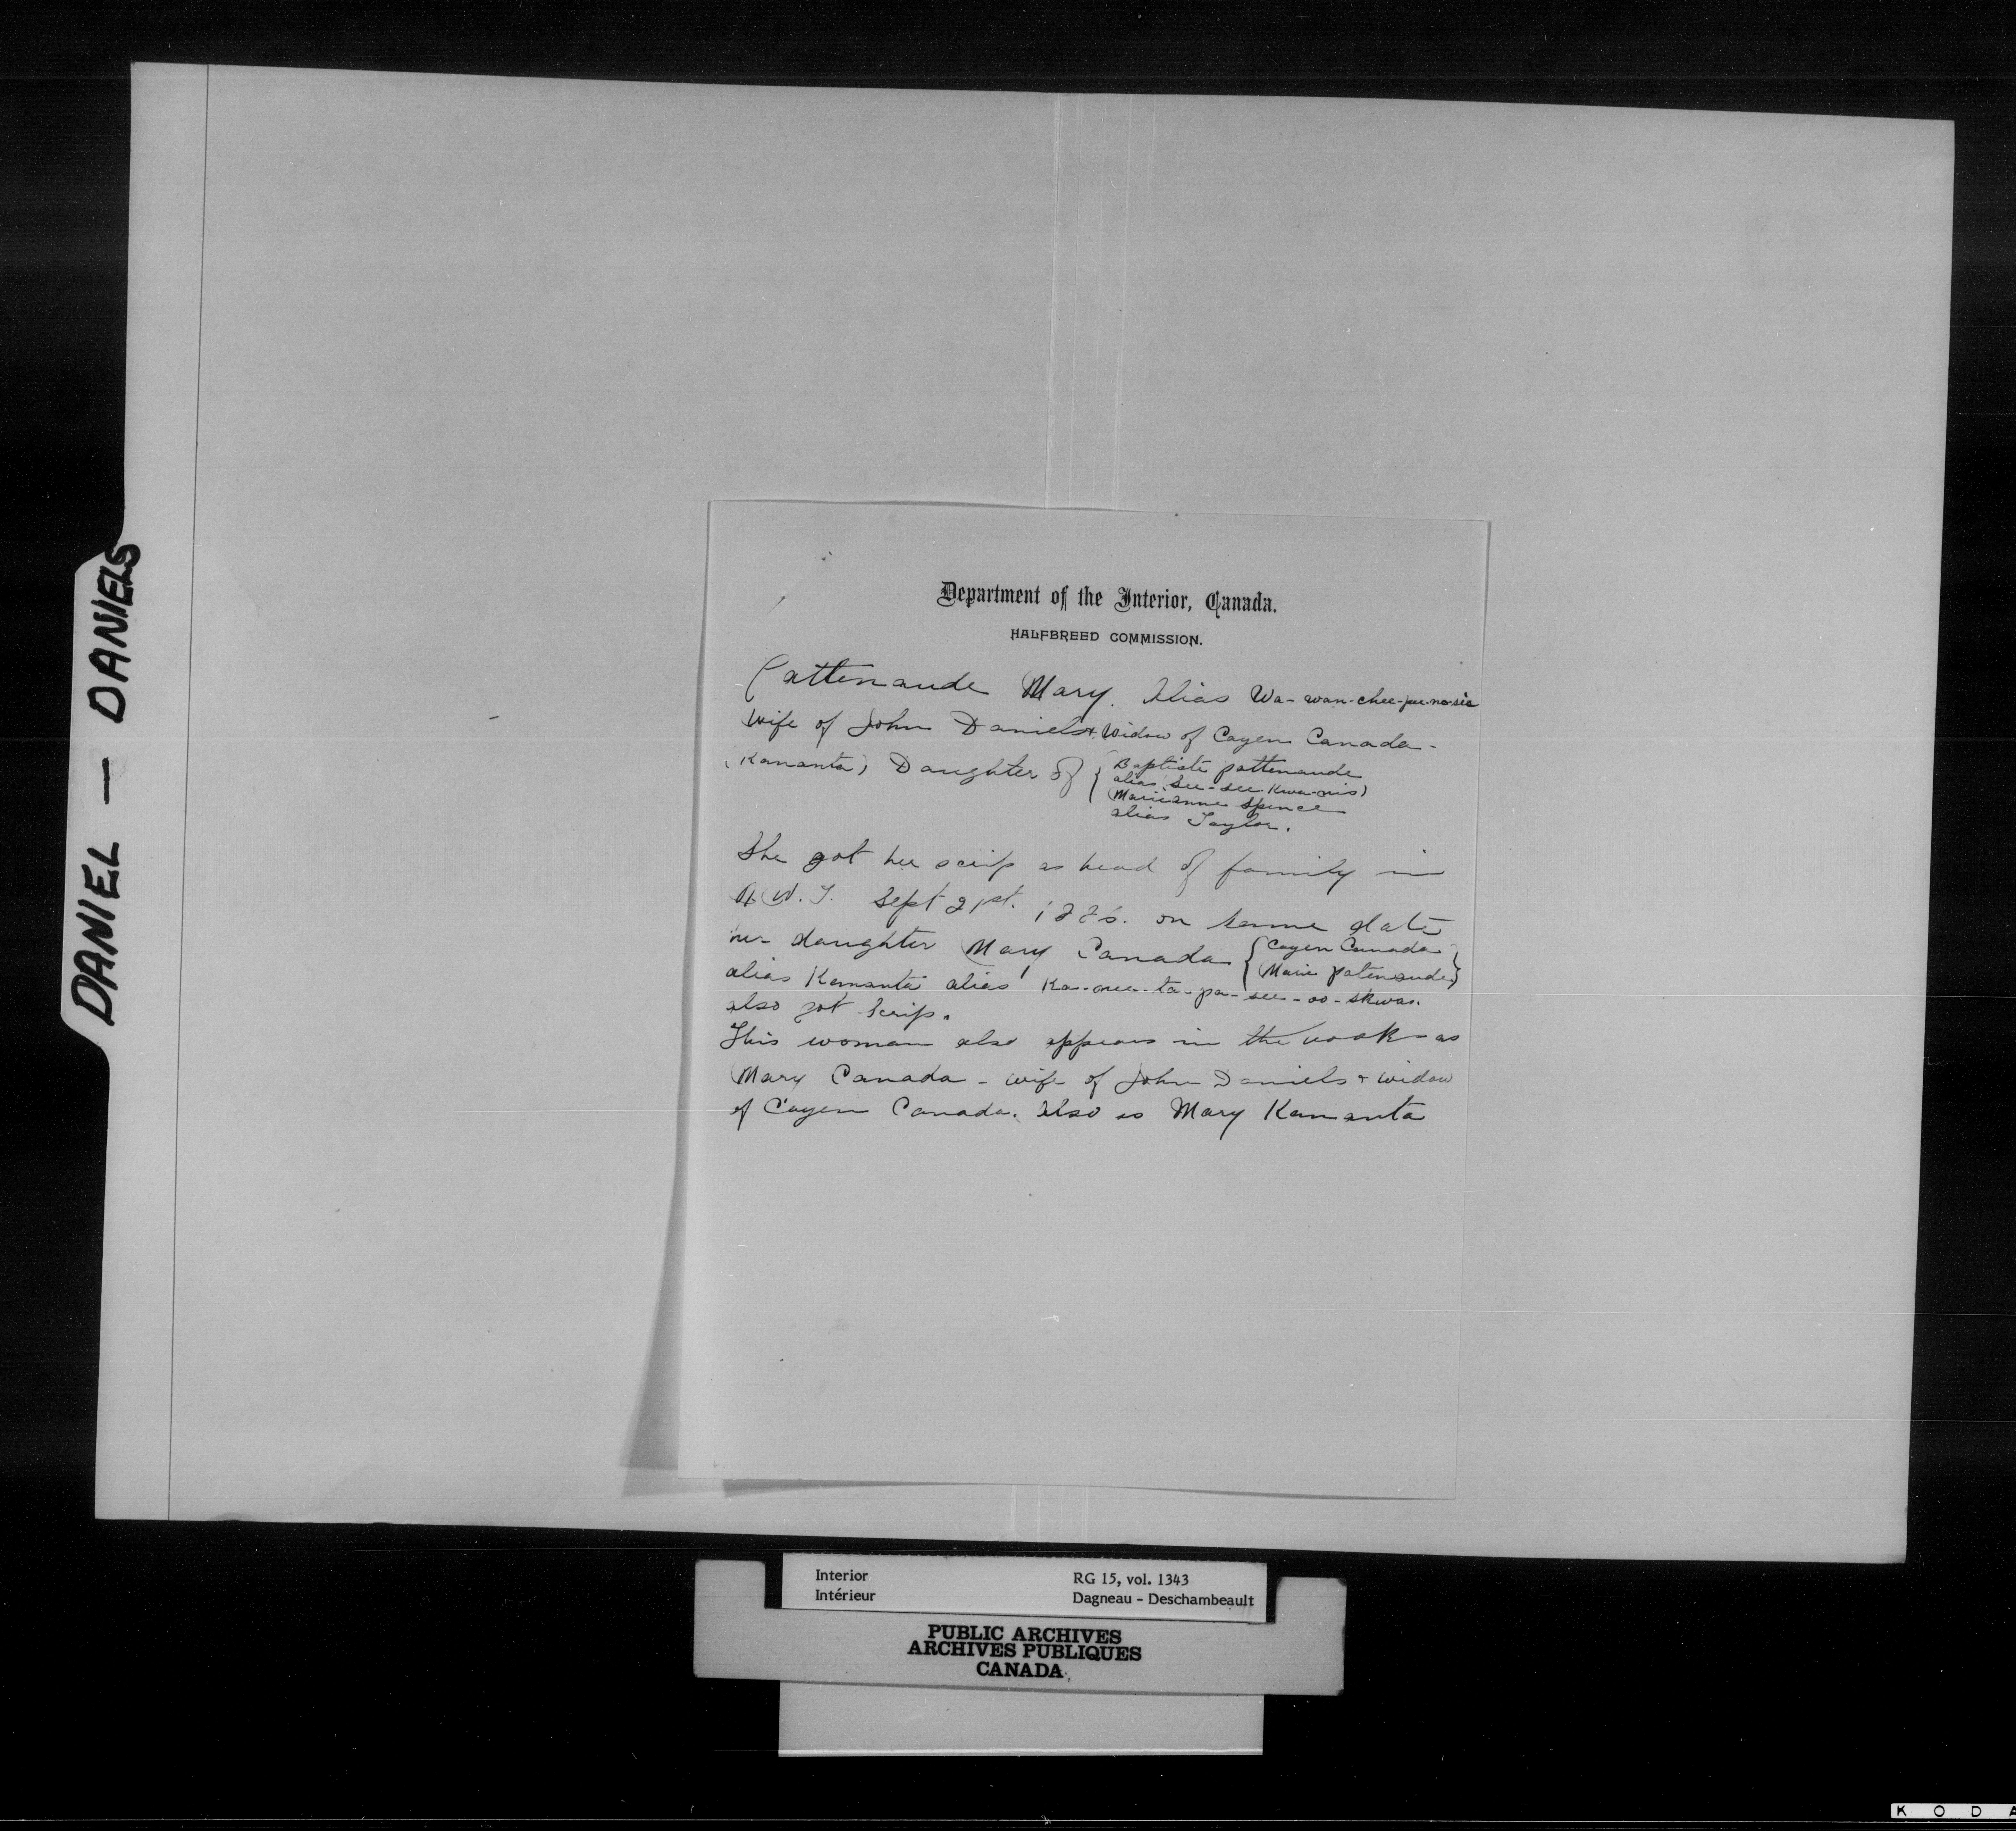 DANIEL — DANIELS
Department of the Interior, Canada.
HALFBREED COMMISSION.
Pattenaude Mary. Alias Wa-wan-chee-pee-no-sis
Wife of John Daniels & Widow of Cayen Canada -
(Kananta) Daughter of { Baptiste pattenaude
alias (See-see-Kwa-nis)
Marieanne Spence
alias Taylor.
She got her scrip as head of family in
N.W.T. Sept 21st. 1886. on same date
her daughter Mary Canada { Cayen Canada
Marie patenaude }
alias Kamanta alias Ka-nee-ta-pa-see-oo-skwao.
also got scrip.
This woman also appears in the books as
Mary Canada - wife of John Daniels & widow
of Cayen Canada. Also as Mary Kamanta
Interior RG 15, vol. 1343
Intérieur Dagneau - Deschambeault
PUBLIC ARCHIVES
ARCHIVES PUBLIQUES
CANADA
K O D A